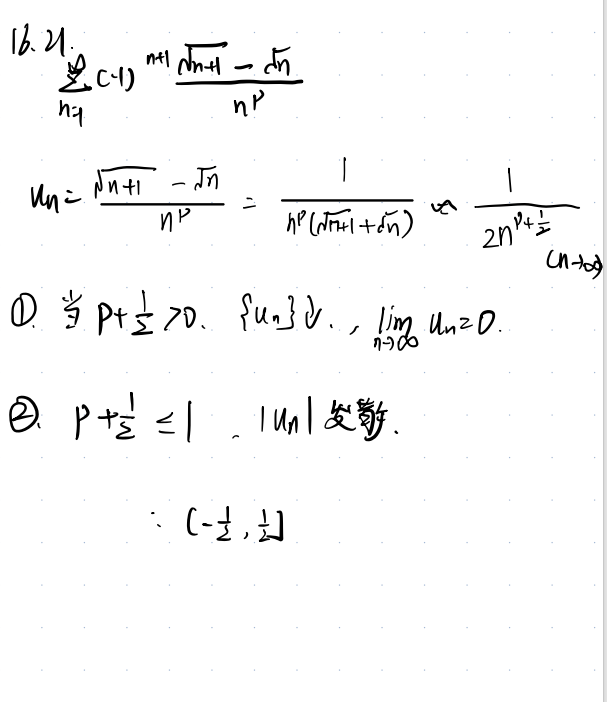 16.21.
∑_{n=1}^{∞} (-1)^{n+1} \frac{\sqrt{n+1} - \sqrt{n}}{n^p}
u_n = \frac{\sqrt{n+1} - \sqrt{n}}{n^p} = \frac{1}{n^p(\sqrt{n+1}+\sqrt{n})} ∽ \frac{1}{2n^{p+\frac{1}{2}}} (n→∞)
①. 当 p+\frac{1}{2} >0. {u_n}↓., \lim_{n→∞} u_n=0.
②. p+\frac{1}{2} ≤1. |u_n| 发散.
∴ (-\frac{1}{2}, \frac{1}{2}]